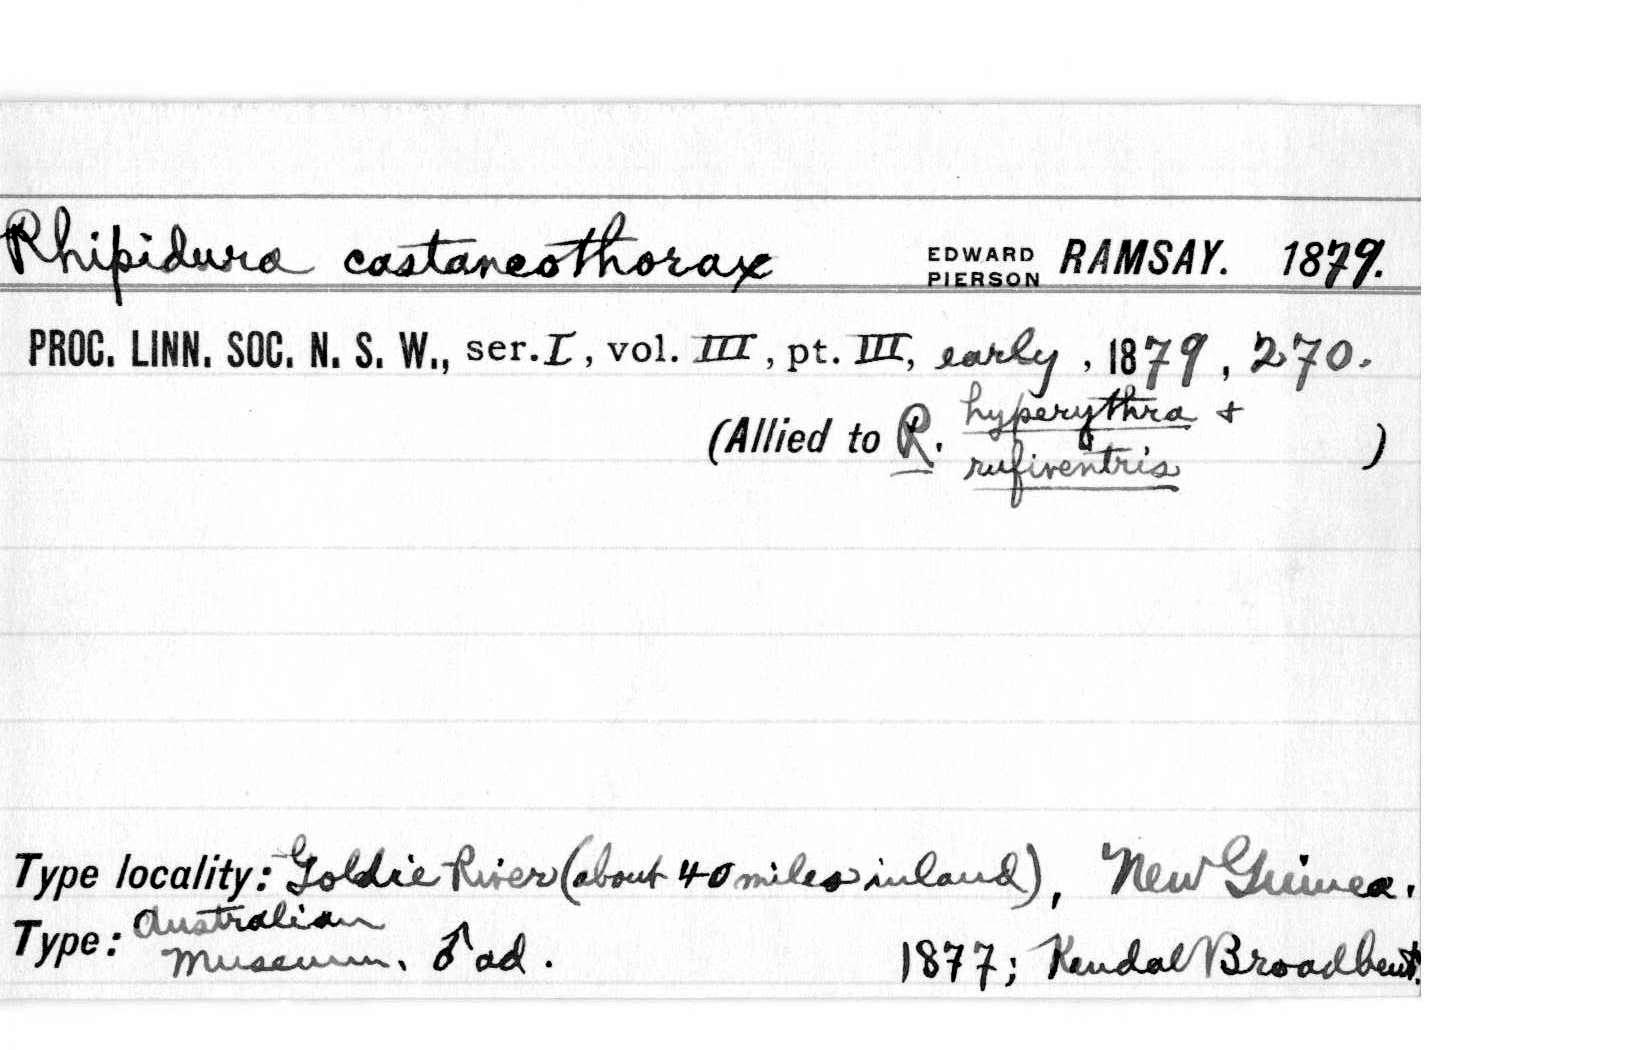 Rhipidura castaneothorax EDWARD PIERSON RAMSAY. 1879.
PROC. LINN. SOC. N. S. W., ser. I, vol. III, pt. III, early, 1879, 270.
(Allied to R. hyperythra +
rufiventris )
Type locality: Goldie River (about 40 miles inland), New Guinea.
Type: Australian
Museum. ♂ ad. 1877; Kendal Broadbent.